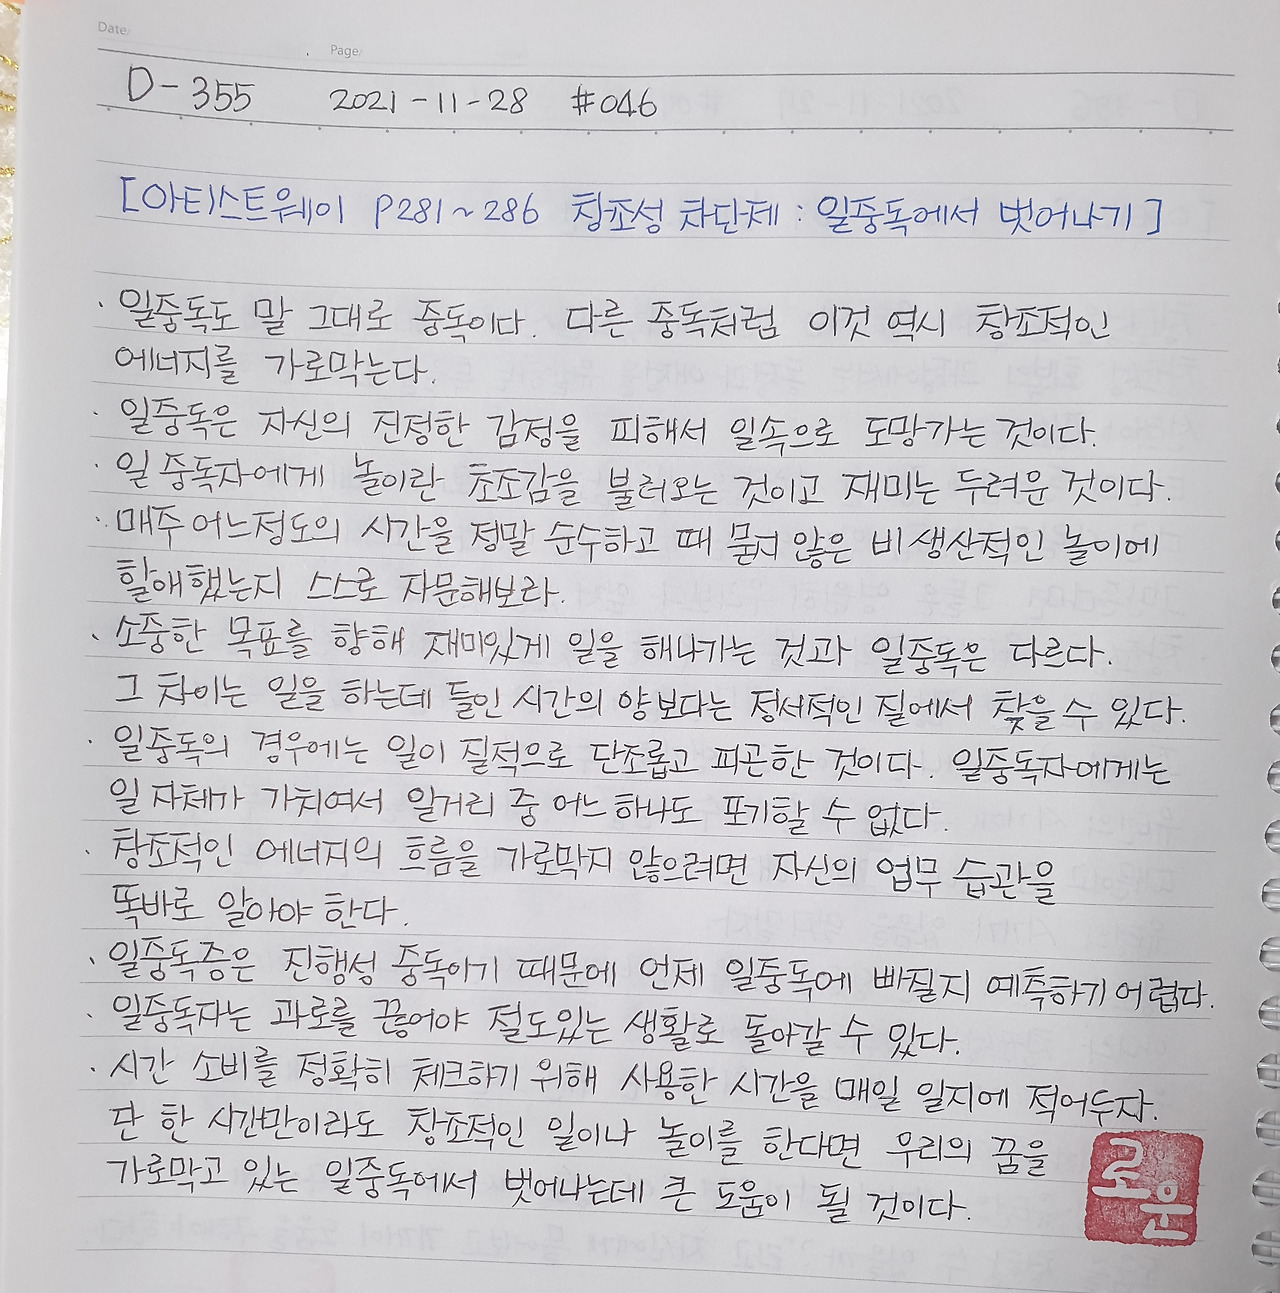 Date/
Page/
D-355 2021-11-28 #046
[아티스트웨이 P281~286 창조성 차단제 : 일중독에서 벗어나기]
· 일중독도 말 그대로 중독이다. 다른 중독처럼 이것 역시 창조적인
에너지를 가로막는다.
· 일중독은 자신의 진정한 감정을 피해서 일속으로 도망가는 것이다.
· 일 중독자에게 놀이란 초조감을 불러오는 것이고 재미는 두려운 것이다.
· 매주 어느정도의 시간을 정말 순수하고 때 묻지 않은 비생산적인 놀이에
할애했는지 스스로 자문해보라.
· 소중한 목표를 향해 재미있게 일을 해나가는 것과 일중독은 다르다.
그 차이는 일을 하는데 들인 시간의 양보다는 정서적인 질에서 찾을 수 있다.
· 일중독의 경우에는 일이 질적으로 단조롭고 피곤한 것이다. 일중독자에게는
일 자체가 가치여서 일거리 중 어느 하나도 포기할 수 없다.
· 창조적인 에너지의 흐름을 가로막지 않으려면 자신의 업무 습관을
똑바로 알아야 한다.
· 일중독증은 진행성 중독이기 때문에 언제 일중독에 빠질지 예측하기 어렵다.
· 일중독자는 과로를 끊어야 절도있는 생활로 돌아갈 수 있다.
· 시간 소비를 정확히 체크하기 위해 사용한 시간을 매일 일지에 적어두자.
단 한 시간만이라도 창조적인 일이나 놀이를 한다면 우리의 꿈을
가로막고 있는 일중독에서 벗어나는데 큰 도움이 될 것이다.
로운